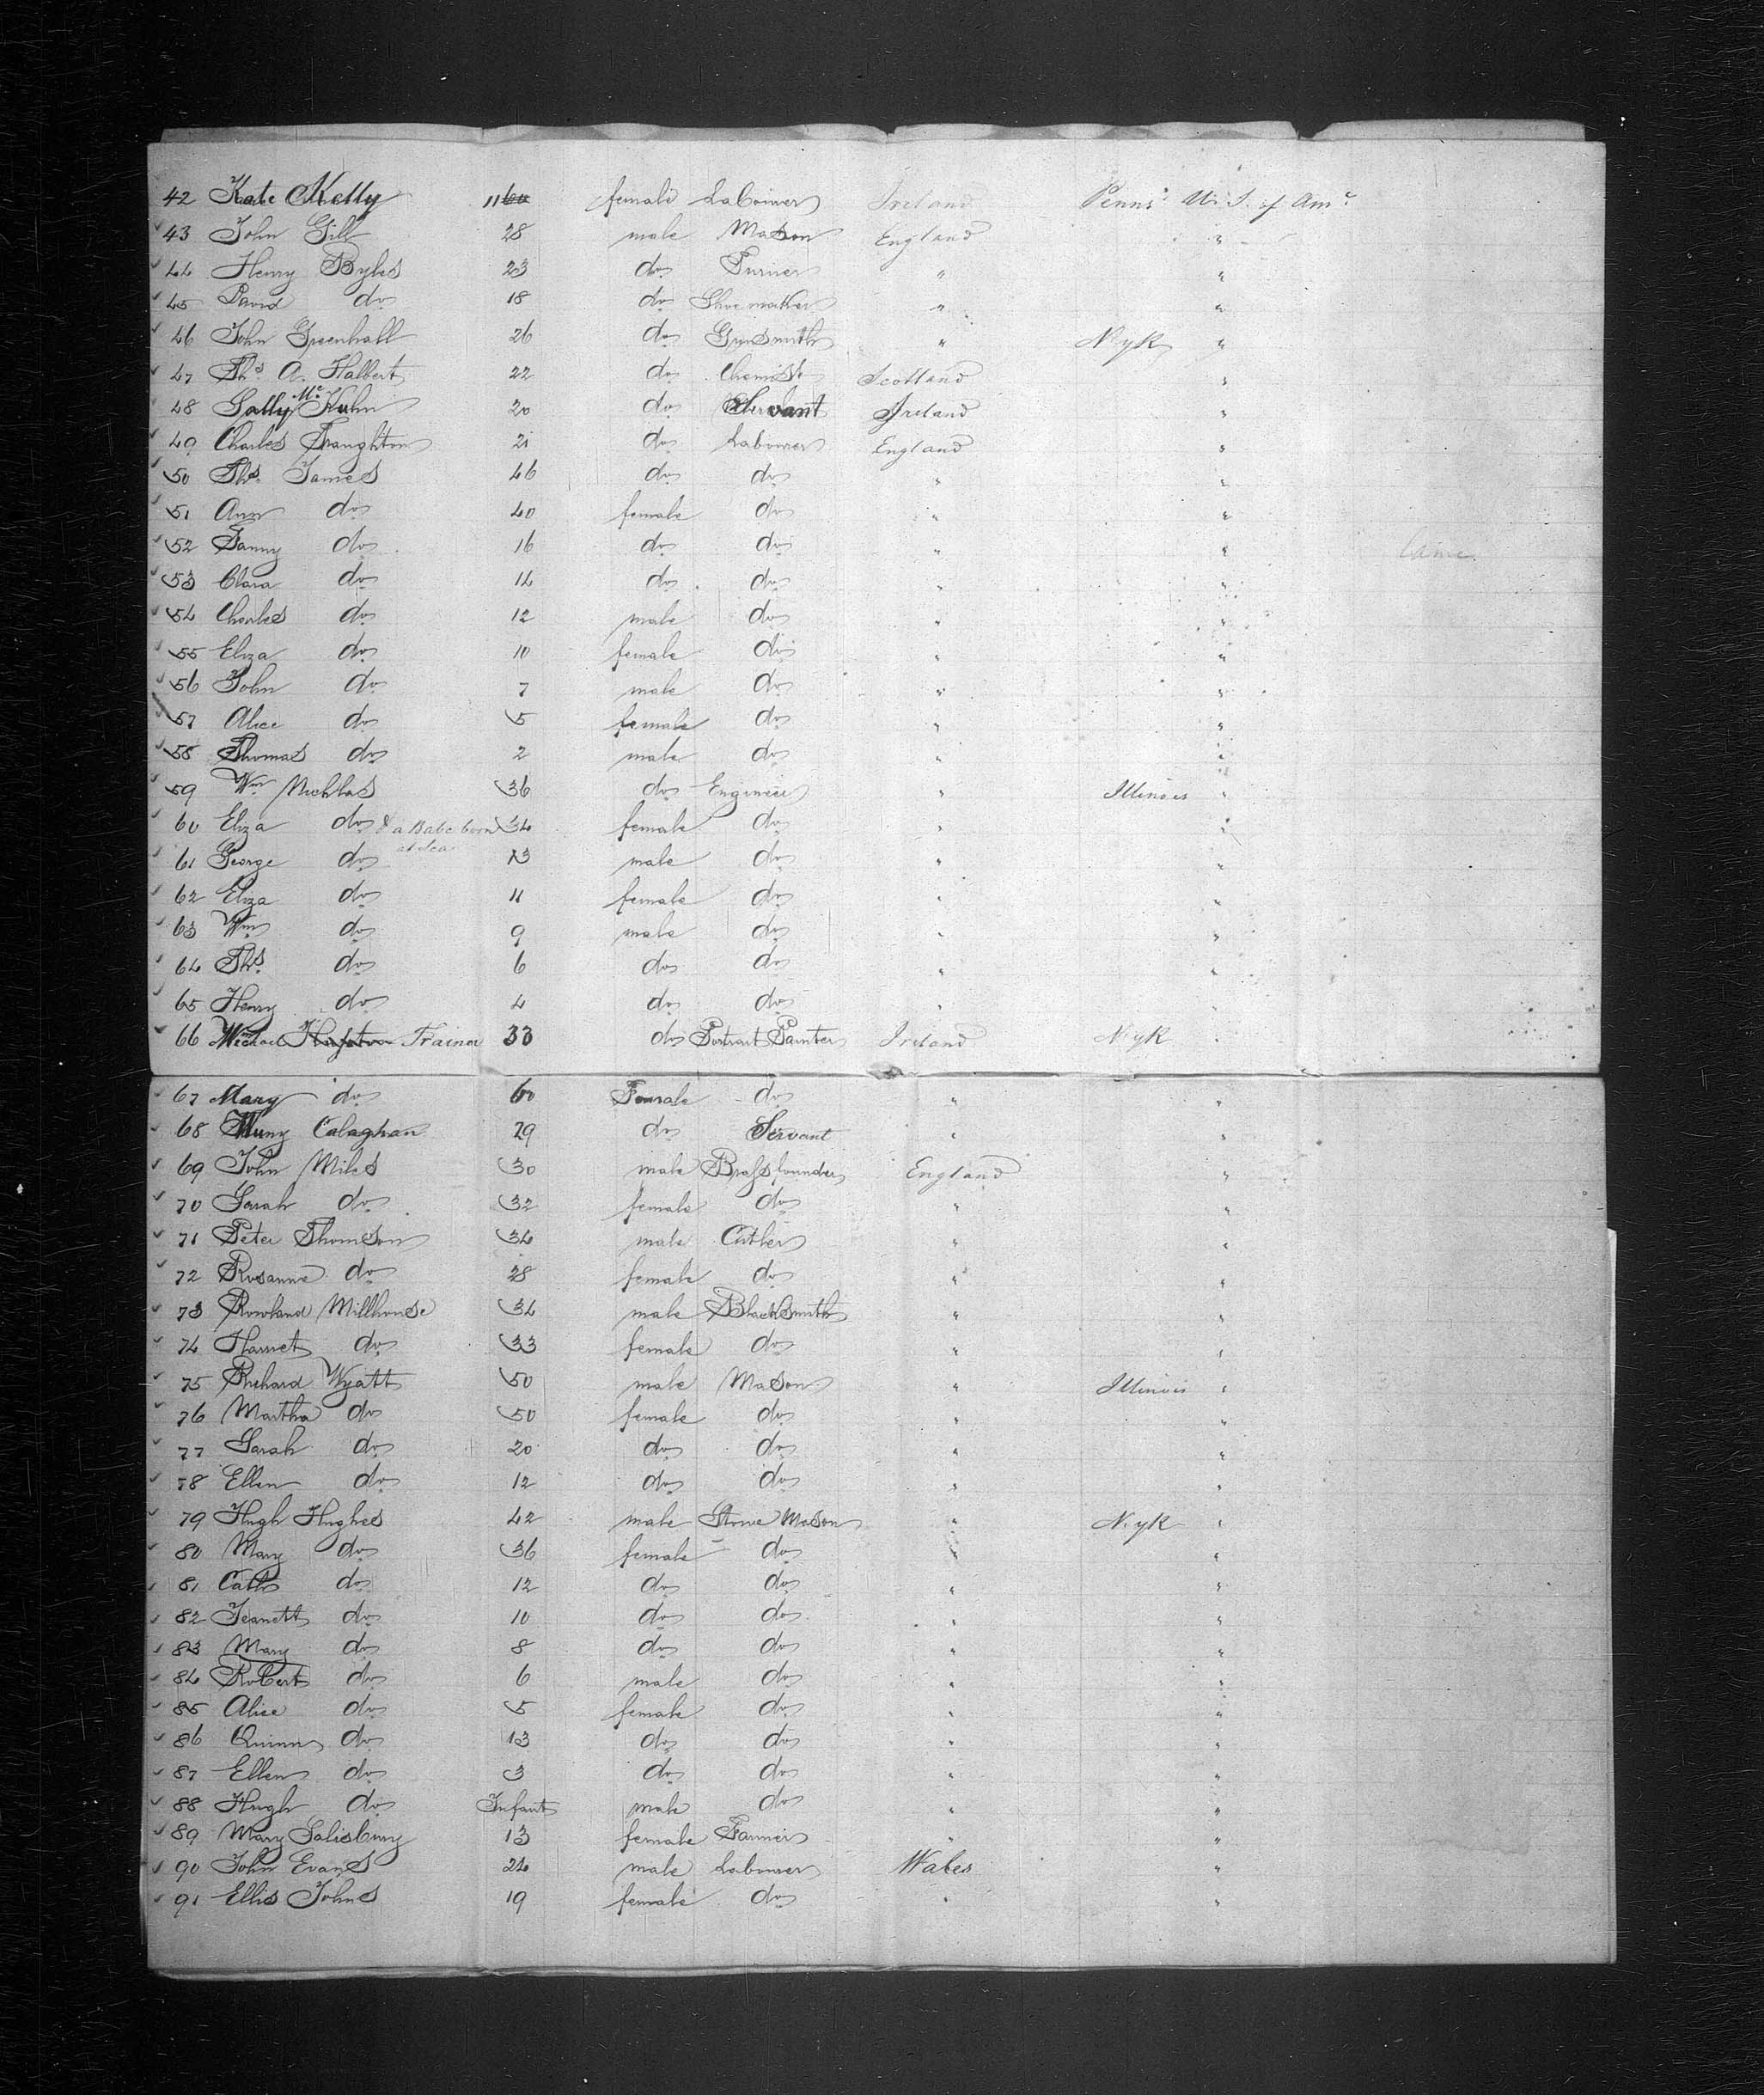 42 Kate Kelly 11 female Labourer Ireland Penns. U. S. of Amc
43 John Gill 28 male Mason England "
44 Henry Byles 23 do Turner " "
45 David do 18 do Shoemaker " "
46 John Greenhall 26 do Gunsmith " N. yk "
47 Ths A. Halbert 22 do Chemist Scotland "
48 Sally Mc Kuhn 20 do Servant Ireland "
49 Charles Traughton 21 do Labourer England "
50 Ths James 46 do do " "
51 Ann do 40 female do " "
52 Fanny do 16 do do " "
53 Clara do 14 do do " "
54 Charles do 12 male do " "
55 Eliza do 10 female do " "
56 John do 7 male do " "
57 Alice do 5 female do " "
58 Thomas do 2 male do " "
59 Wm Nichlas 36 do Engineer " Illinois "
60 Eliza do & a Babe born at sea 34 female do " "
61 George do 13 male do " "
62 Eliza do 11 female do " "
63 Wm do 9 male do " "
64 Ths do 6 do do " "
65 Henry do 4 do do " "
66 Michael Trainer 33 do Portrait Painter Ireland N. yk "
67 Mary do 60 Female do " "
68 Calaghan 29 do Servant " "
69 John Miles 30 male Brassfounder England "
70 Sarah do 32 female do " "
71 Peter Thomson 34 male Cutler " "
72 Rosanna do 28 female do " "
73 Rowland Millhouse 34 male BlackSmith " "
74 Harriet do 33 female do " "
75 Richard Wyatt 50 male Mason " Illinois "
76 Martha do 50 female do " "
77 Sarah do 20 do do " "
78 Ellen do 12 do do " "
79 Hugh Hughes 42 male Stone Mason " N. yk "
80 Mary do 36 female do " "
81 Cath do 12 do do " "
82 Jeanett do 10 do do " "
83 Mary do 8 do do " "
84 Robert do 6 male do " "
85 Alice do 5 female do " "
86 do 13 do do " "
87 Ellen do 3 do do " "
88 Hugh do Infant male do " "
89 Mary Salisbury 13 female Farmer " "
90 John Evans 24 male Labourer Wales "
91 Ellis Johns 19 female do " "